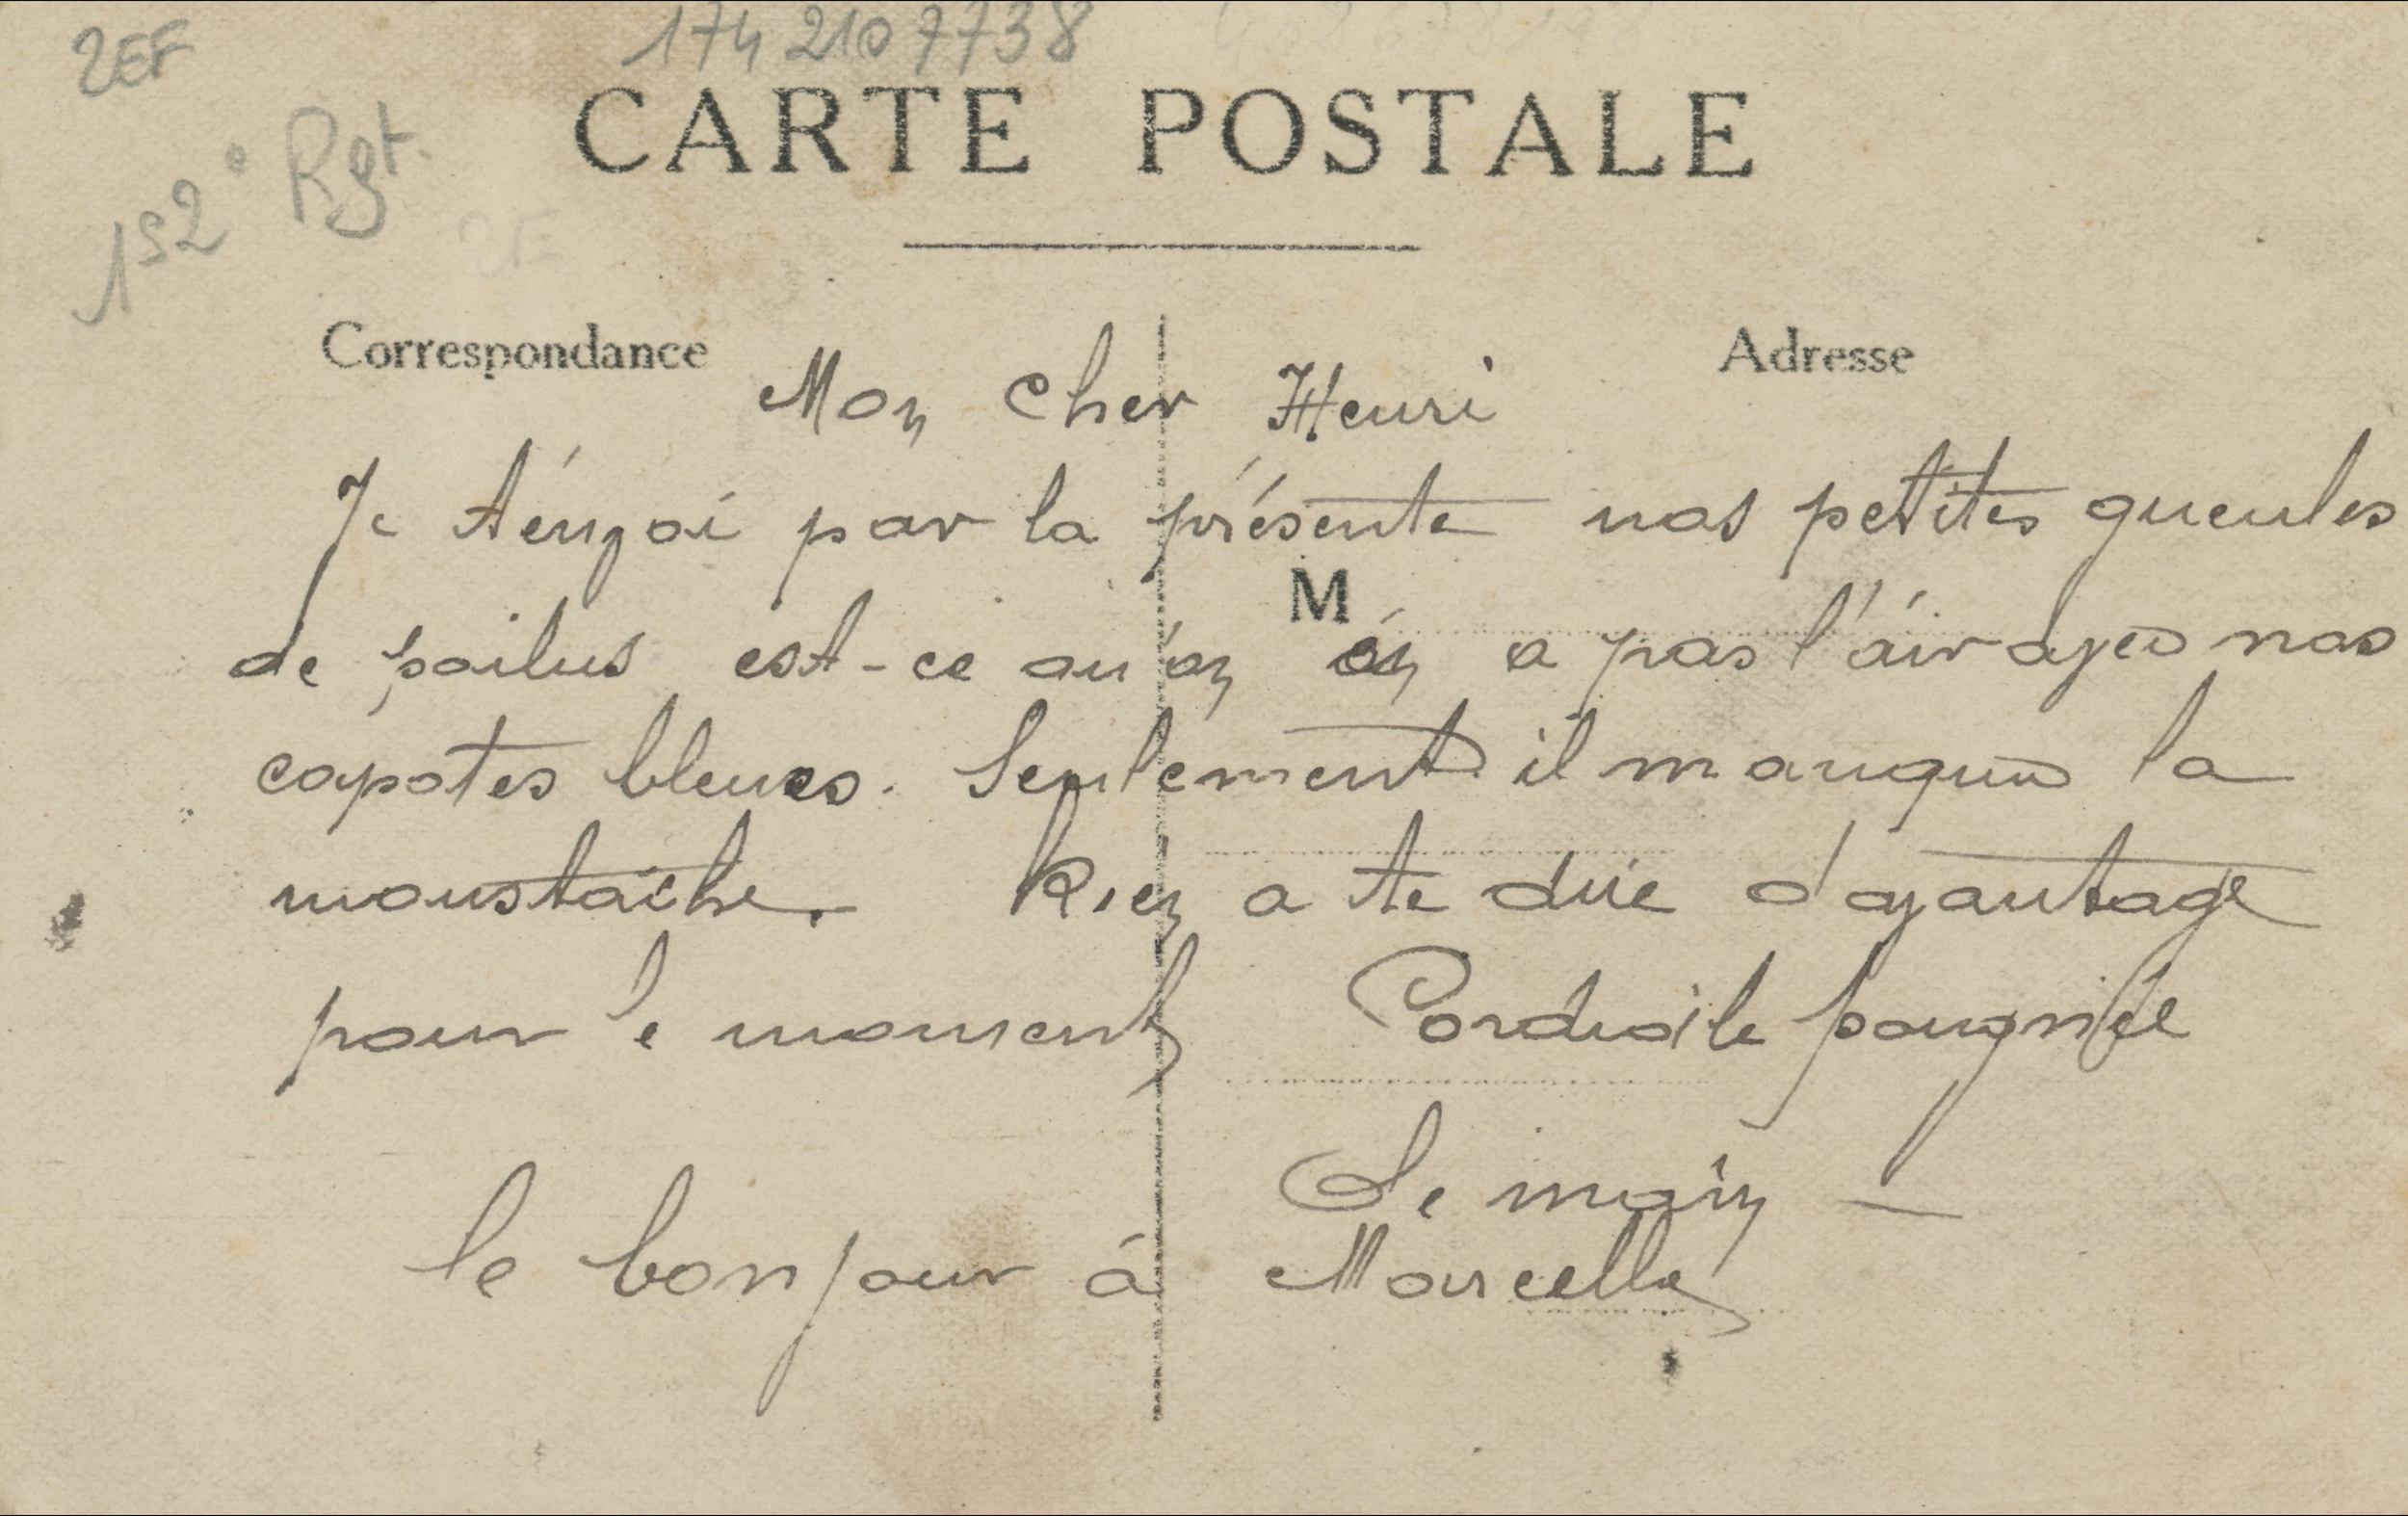 2EF
174 210 7738
152e Rgt.
CARTE POSTALE
Correspondance
Adresse
Mon cher Henri
Je t'envoi par la présente nos petites gueules
M
de poilus est-ce qu'on en a pas l'air avec nos
capotes bleues. Seulement il manque la
moustache. Rien a te dire davantage
pour le moment Cordiale poignée
De main —
le bonjour à Marcelle